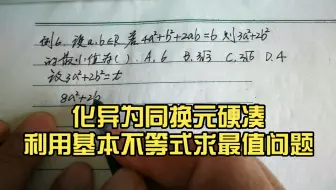 例6.设a,b∈R 若4a²+b²+2ab=6 则3a²+2b²
的最小值为( ). A.6 B.3√3 C.3√5 D.4
设3a²+2b²=t
8a²+2b
化异为同换元硬凑
利用基本不等式求最值问题